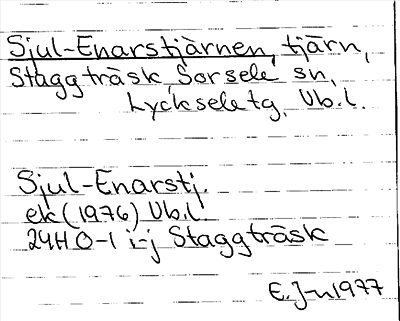 Sjul-Enarstjärnen, tjärn,
Staggträsk, Sorsele sn,
Lycksele tg, Vb.l.
Sjul-Enarstj.
ek (1976) Vb.l
24H 0-1 i-j Staggträsk
E.J-n 1977